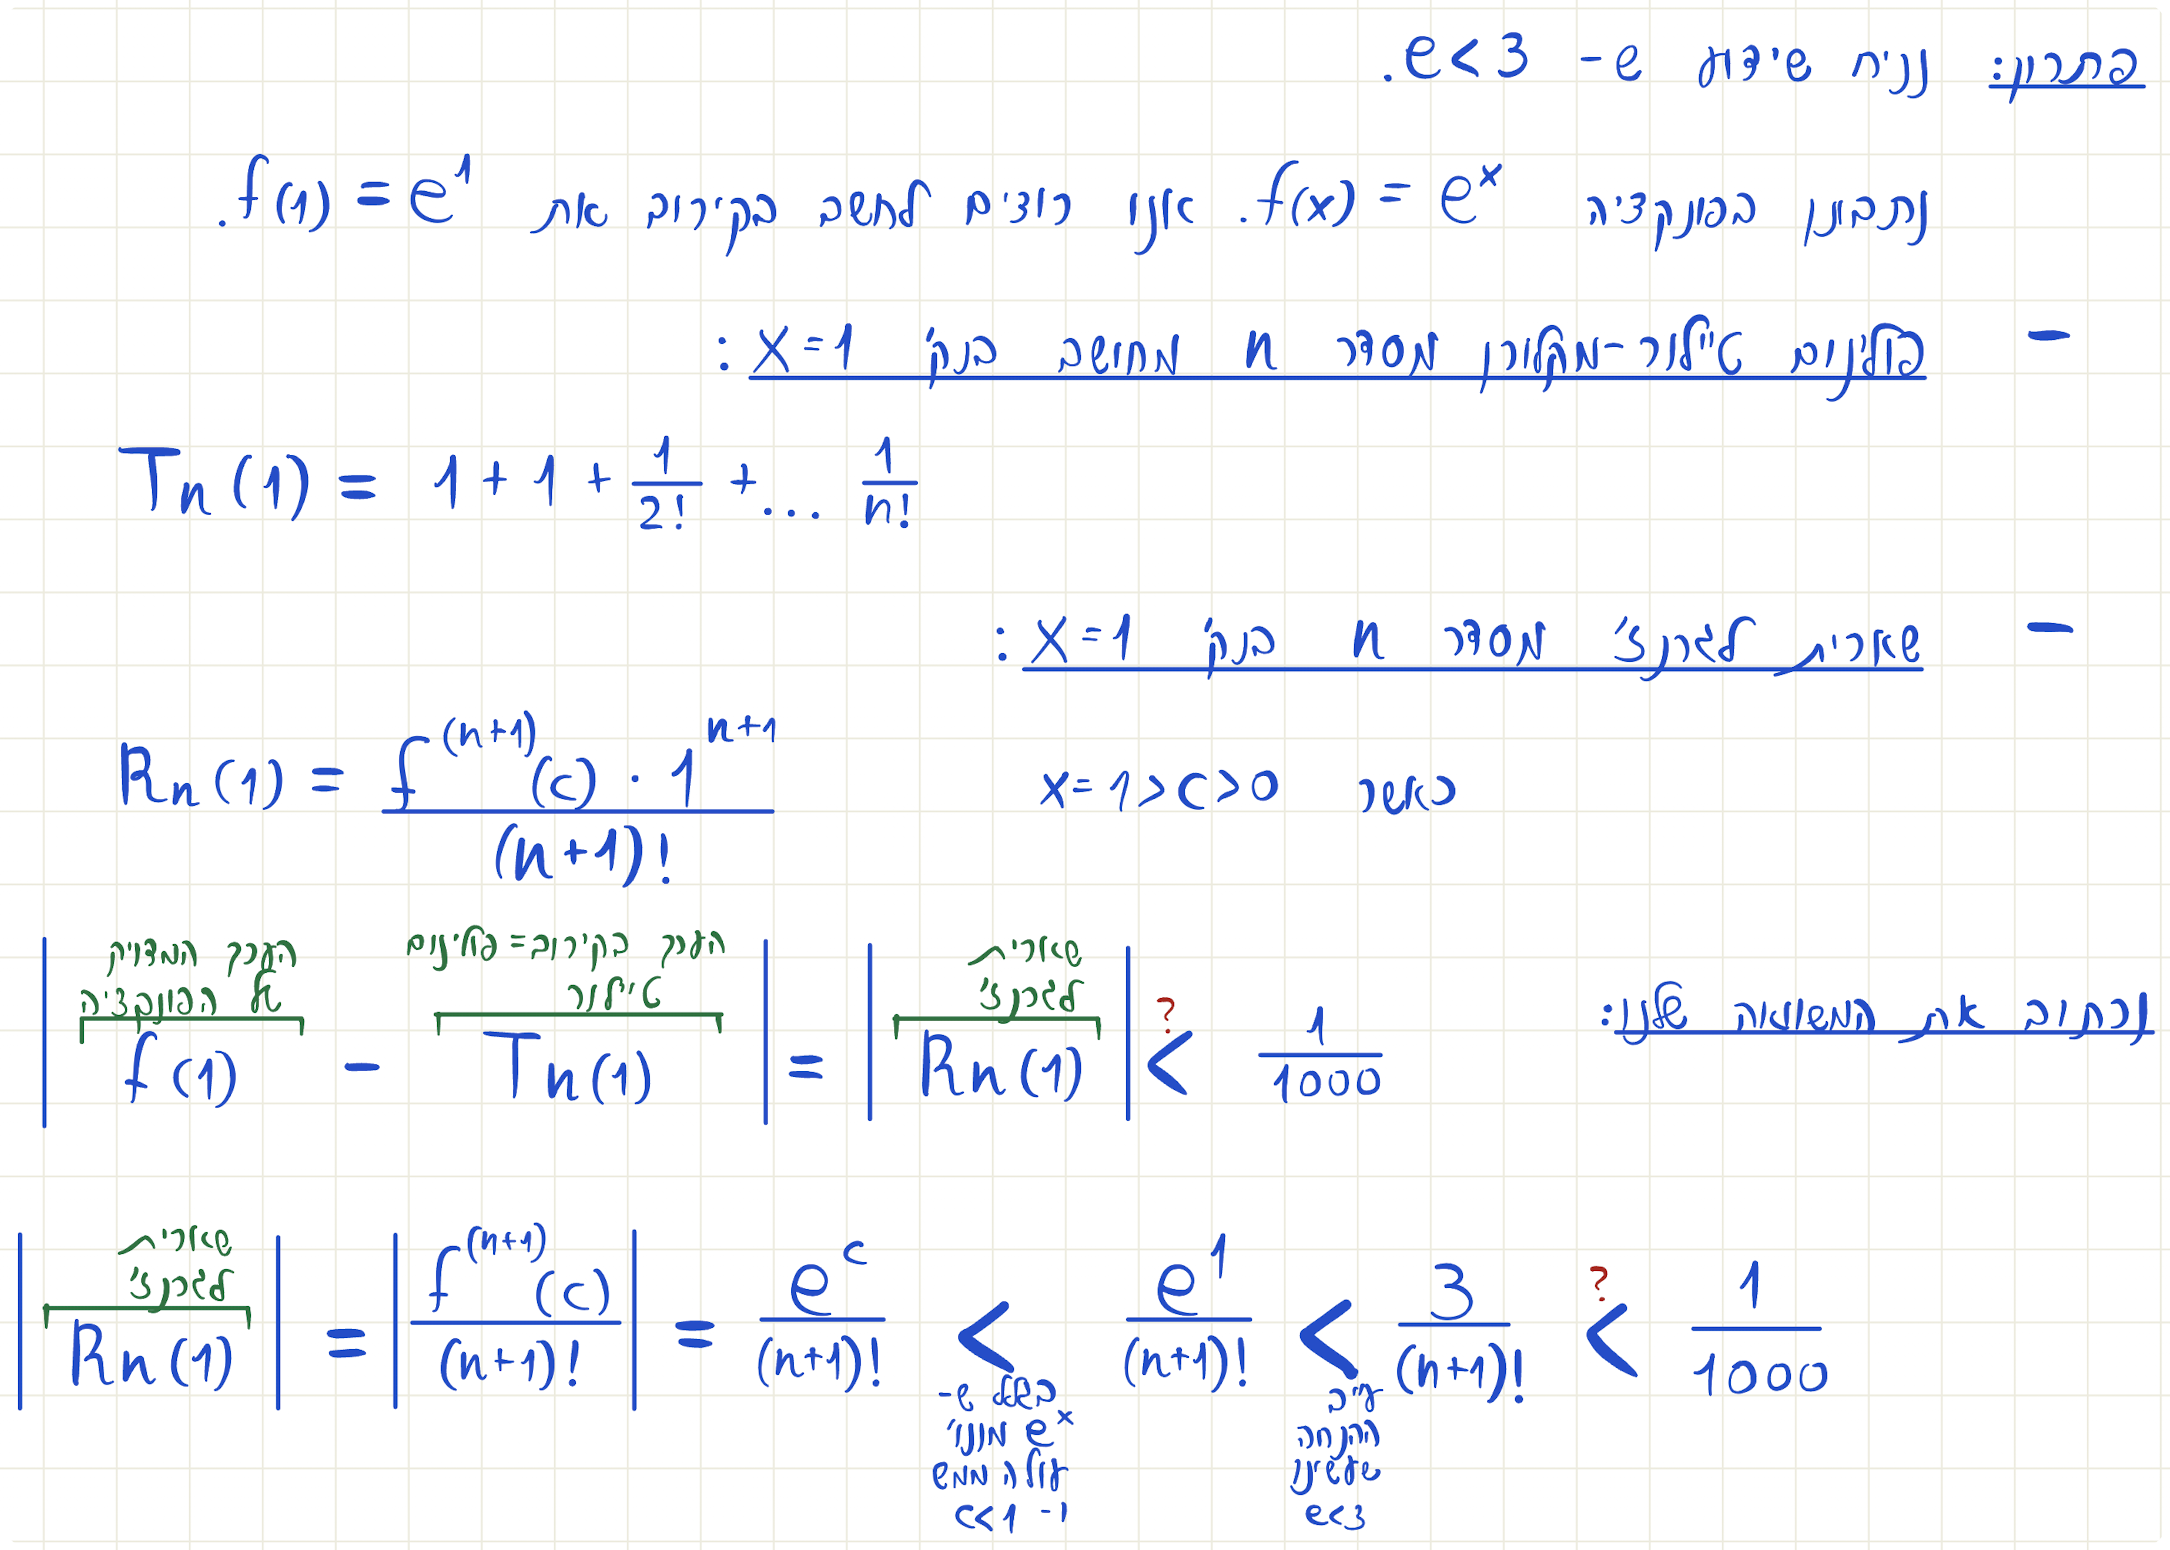 פתרון: נניח שידוע ש- e<3.
נתבונן בפונקציה f(x) = e^x. אנו רוצים לחשב בקירוב את f(1) = e^1.
- פולינום טיילור-מקלורן מסדר n מחושב בנק' x=1:
Tn(1) = 1 + 1 + 1/2! + ... 1/n!
- שארית לגרנז' מסדר n בנק' x=1:
Rn(1) = f^(n+1)(c) · 1^(n+1) / (n+1)! כאשר x=1>c>0
נכתוב את המשוואה שלנו:
הערך המדוייק של הפונקציה
הערך בקירוב = פולינום טיילור
שארית לגרנז'
|f(1) - Tn(1)| = |Rn(1)| <? 1/1000
שארית לגרנז'
|Rn(1)| = |f^(n+1)(c) / (n+1)!| = e^c / (n+1)! < e^1 / (n+1)! < 3 / (n+1)! <? 1/1000
בגלל ש-
e^x מונו'
עולה ממש
ו- c<1
ע"ב
ההנחה
שעשינו
e<3